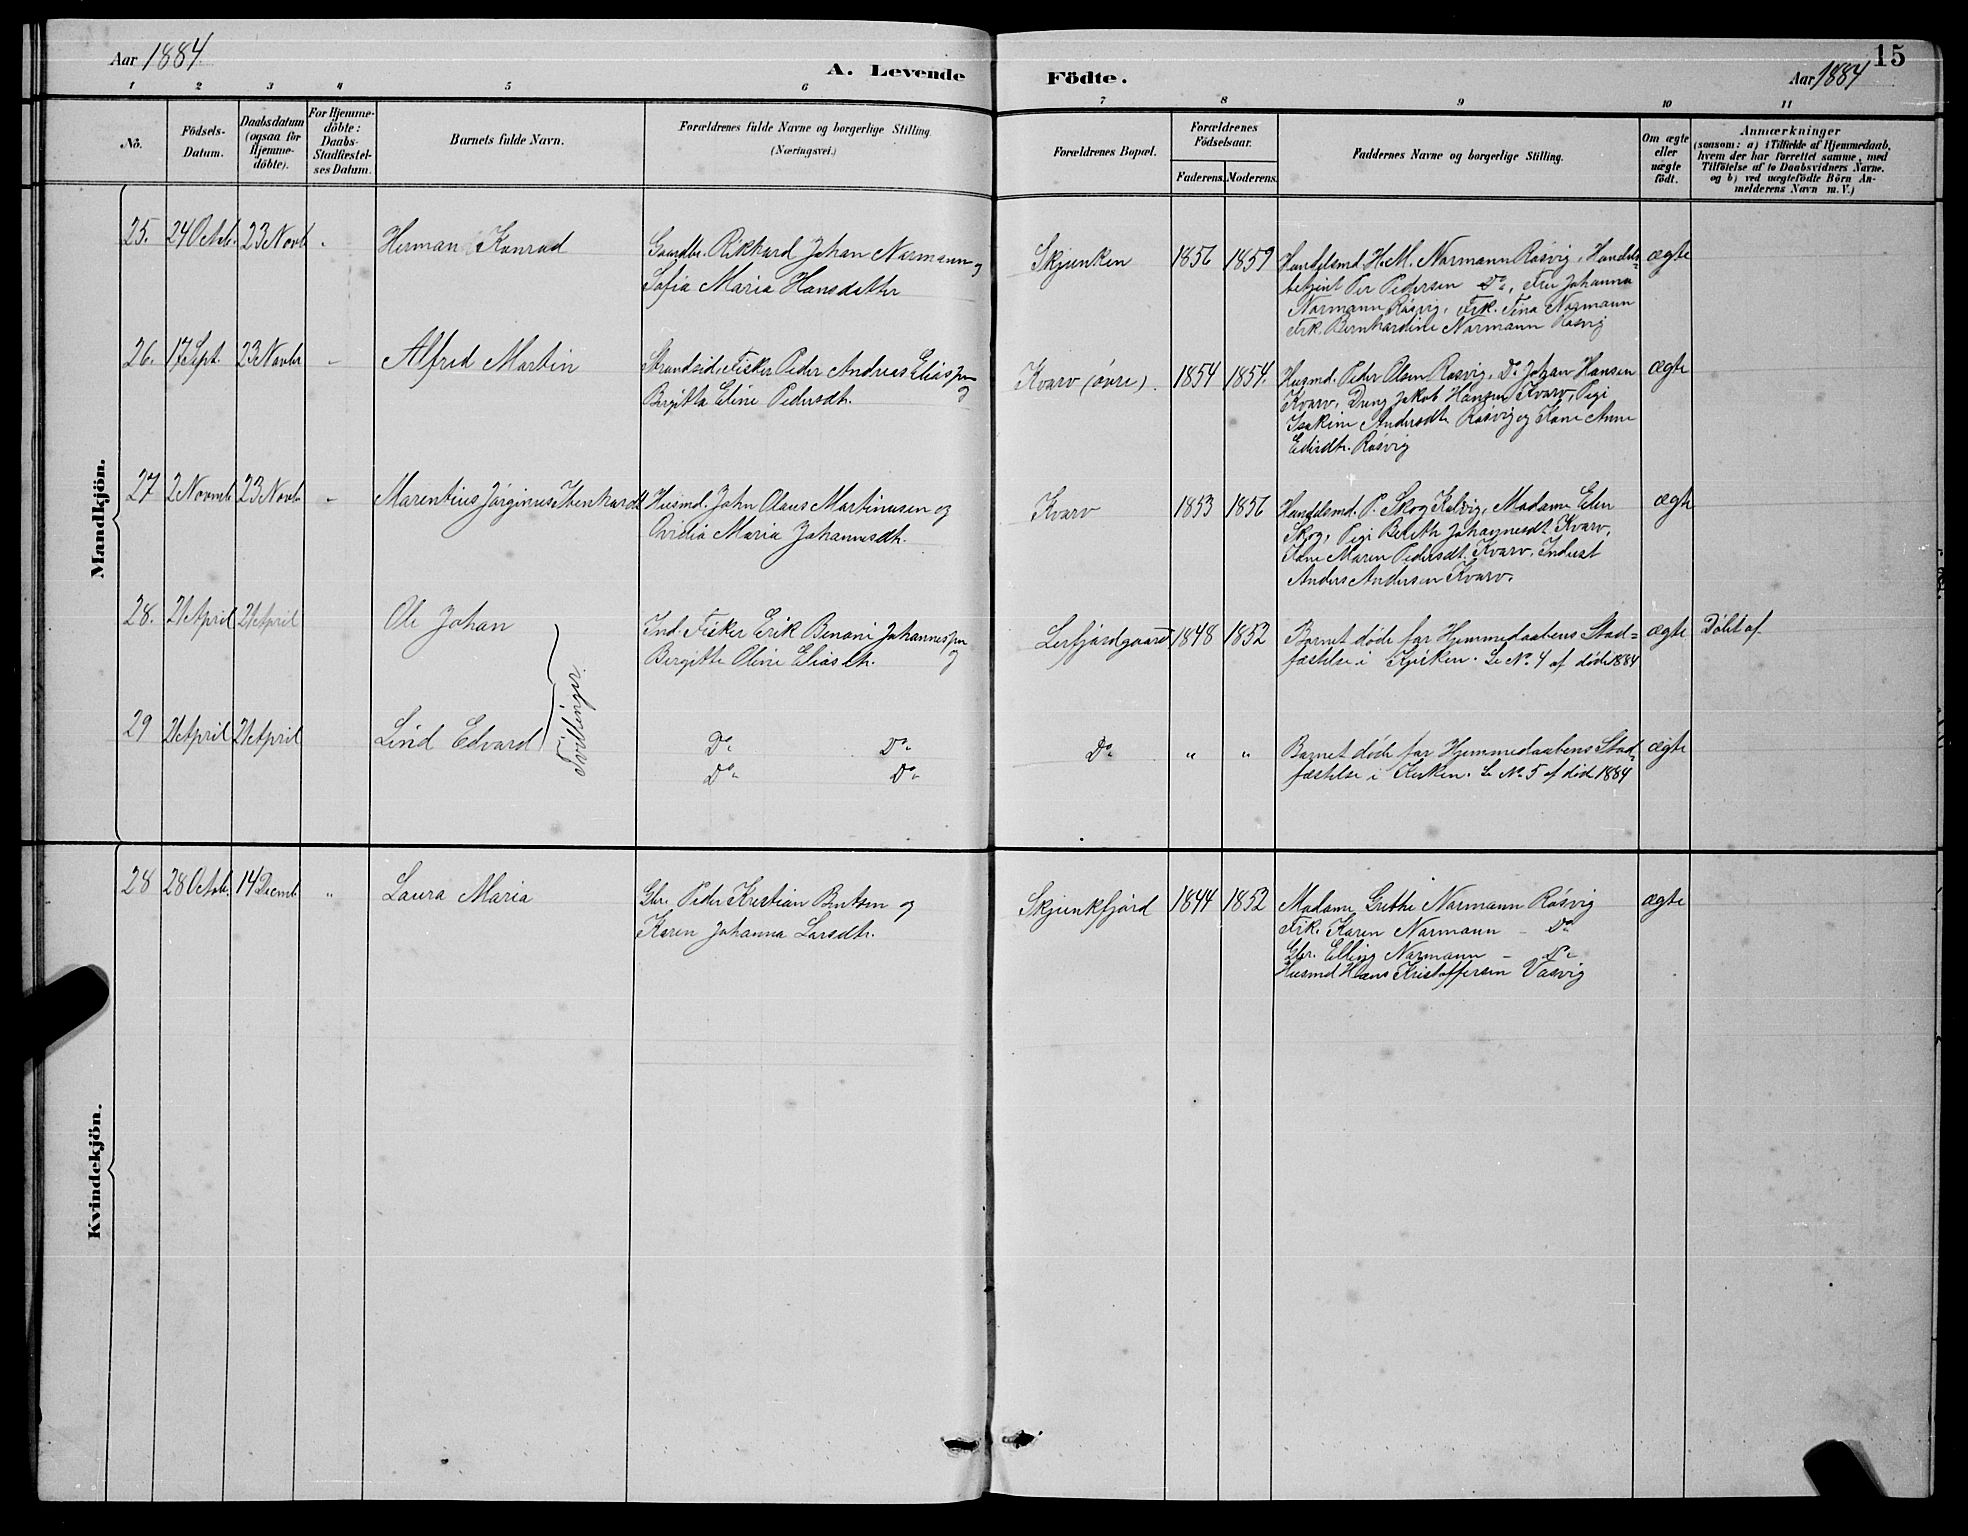 Aar 1884
A. Levende
Födte.
15
Aar 1884
1 2 3 4 5 6
7 8 9 10 11
No.
Födsels-
Datum.
Daabsdatum
(ogsaa for
Hjemme-
döbte).
For Hjemme-
döbte:
Daabs-
Stadfæstel-
ses Datum.
Barnets fulde Navn.
Forældrenes fulde Navne og borgerlige Stilling.
(Næringsvei.)
Forældrenes Bopæl.
Forældrenes
Födselsaar.
Faderens.
Moderens.
Faddernes Navne og borgerlige Stilling.
Om ægte
eller
uægte
födt.
Anmærkninger
(saasom: a) i Tilfælde af Hjemmedaab,
hvem der har forrettet samme, med
Tilföielse af to Daabsvidners Navne,
og b) ved uægtefödte Börn An-
melderens Navn m. V.)
Mandkjön.
25. 24 Octb. 23 Novb
Herman Konrad
Gaardbr. Rikkard Johan Normann og
Sofia Maria Hansdatter
Skjunken 1856 1859
Handelsmd. H. M. Normann Røsvig, Handels-
betjent Per Pedersen Do, Fru Johanna
Normann Røsvig, Frk. Tina Normann
Frk. Bernhardine Normann Røsvig
ægte
26. 17 Sept. 23 Novbr -
Alfred Martin
Strandsid. Fisker Peder Andreas Eliassen
og
Bergitta Eline Pedersdt.
Kvarv (øvre). 1854 1854.
Husmd. Peder Olsen Røsvig, Do Johan Hansen
Kvarv, Dreng Jakob Hansen Kvarv, Pigi
Isakine Andersdtr Røsvig og Kone Anne
Røsvig
ægte
27 2 Novmb 23 Novb -
Marentius Jørginus
Husmd. John Olaus Martinusen og
Ovidia Maria Johannesdt.
Kvarv 1853 1856
Handelsmd. P. Skog Kelvig, Madame Elen
Skog, Pigi Berith Johannesdt. Kvarv,
Kone Maren Pedersdt. Kvarv, Inderst
Anders Andersen Kvarv.
ægte
28. 21 April 21 April
Ole Johan
Ind. Fisker Erik Benoni Johannessen
og
Bergitte Oline Eliasdtr.
Leifjordgaard 1848 1852
Barnet døde før Hjemmedaabens Stad-
fæstelse i Kirken. Se No. 4 af døde 1884
ægte
Døbt af
Tvillinger.
29 21 April 21 April
Lind Edvard
Do Do
Do Do
Do " "
Barnet døde før Hjemmedaabens Stad-
fæstelse i Kirken. Se No. 5 af død. 1884
ægte
Kvindekjön.
28 28 Octob. 14 Decmb "
Laura Maria
Gbr. Peder Kristian Bentsen og
Karen Johanna Larsdtr.
Skjunkfjord 1844 1852
Madame Grethe Normann Røsvig
Frk. Karen Normann - Do
Gbr. Elling Normann - Do
Husmd Hans Kristoffersen Vasvig
ægte